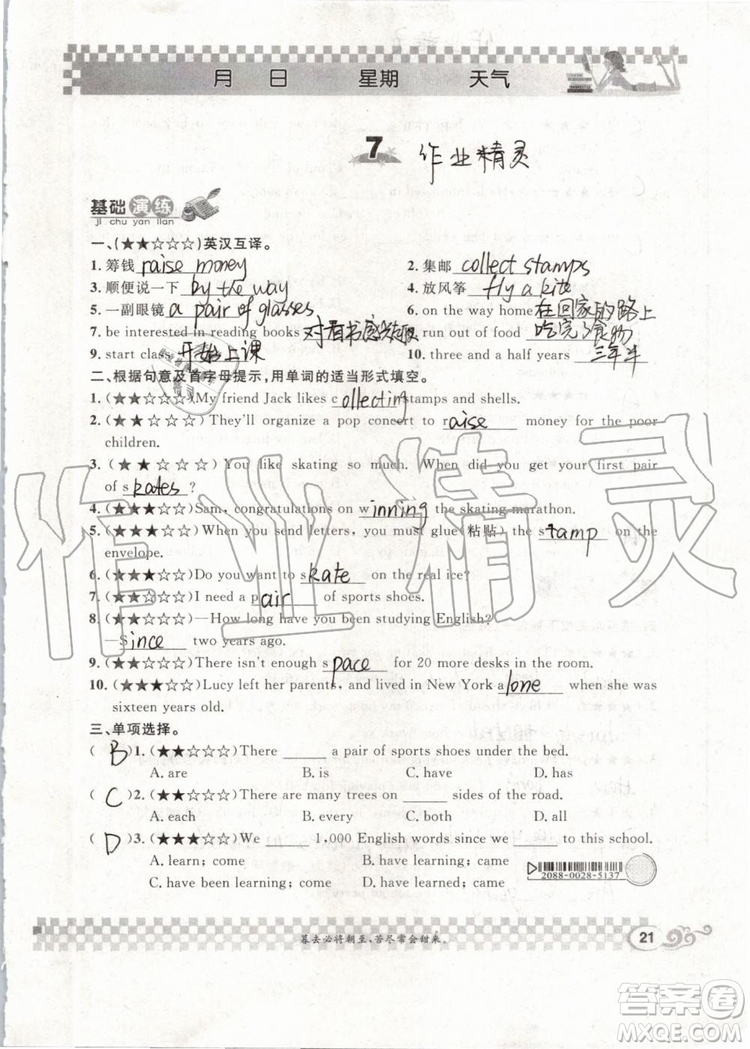 月 日 星期 天气
7 作业精灵
基础演练
ji chu yan lian
一、(★★☆☆☆)英汉互译。
1. 筹钱 raise money 2. 集邮 collect stamps
3. 顺便说一下 by the way 4. 放风筝 fly a kite
5. 一副眼镜 a pair of glasses 6. on the way home 在回家的路上
7. be interested in reading books 对看书感兴趣 8. run out of food 吃完了食物
9. start class 开始上课 10. three and a half years 三年半
二、根据句意及首字母提示,用单词的适当形式填空。
1. (★★☆☆☆)My friend Jack likes collecting stamps and shells.
2. (★★☆☆☆)They'll organize a pop concert to raise money for the poor
children.
3. (★★☆☆☆)You like skating so much. When did you get your first pair
of skates?
4. (★★★☆☆)Sam, congratulations on winning the skating marathon.
5. (★★★☆☆)When you send letters, you must glue(粘贴) the stamp on the
envelope.
6. (★★★☆☆)Do you want to skate on the real ice?
7. (★★★☆☆)I need a pair of sports shoes.
8. (★★★☆☆)—How long have you been studying English?
—Since two years ago.
9. (★★★☆☆)There isn't enough space for 20 more desks in the room.
10. (★★★☆☆)Lucy left her parents, and lived in New York alone when she was
sixteen years old.
三、单项选择。
( B )1. (★★☆☆☆)There ______ a pair of sports shoes under the bed.
A. are B. is C. have D. has
( C )2. (★★☆☆☆)There are many trees on ______ sides of the road.
A. each B. every C. both D. all
( D )3. (★★★☆☆)We ______ 1,000 English words since we ______ to this school.
A. learn; come B. have learning; came
C. have been learning; come D. have been learning; came
2088-0028-5137
暮去必将朝至,苦尽常会甜来。
21
作业精灵
答案圈
MXQE.COM